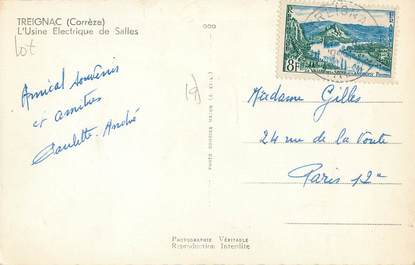 TREIGNAC (Corrèze)
L'Usine Electrique de Salles
Lot
Amical Souvenir
et amitiés
Paulette - André
8F
Madame Gilles
24 rue de la Voute
Paris 12e
PHOTOGRAPHIE VÉRITABLE
Reproduction Interdite